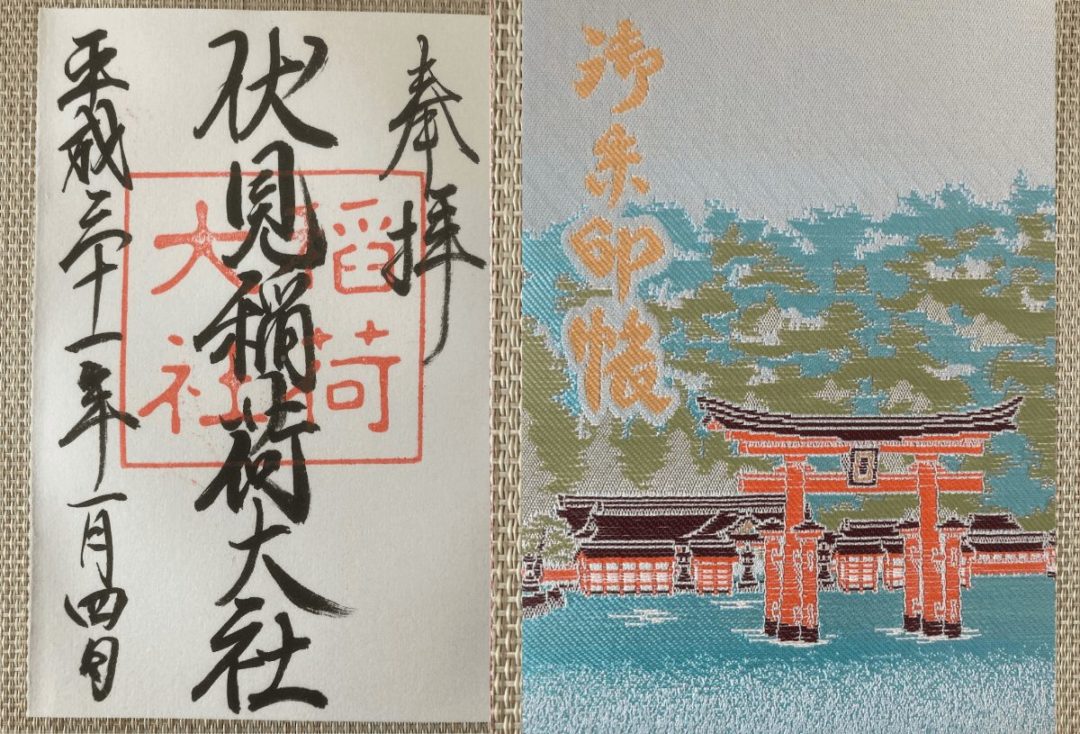 奉拝
伏見稲荷大社
稲荷
大社
平成三十一年一月四日
御朱印帳